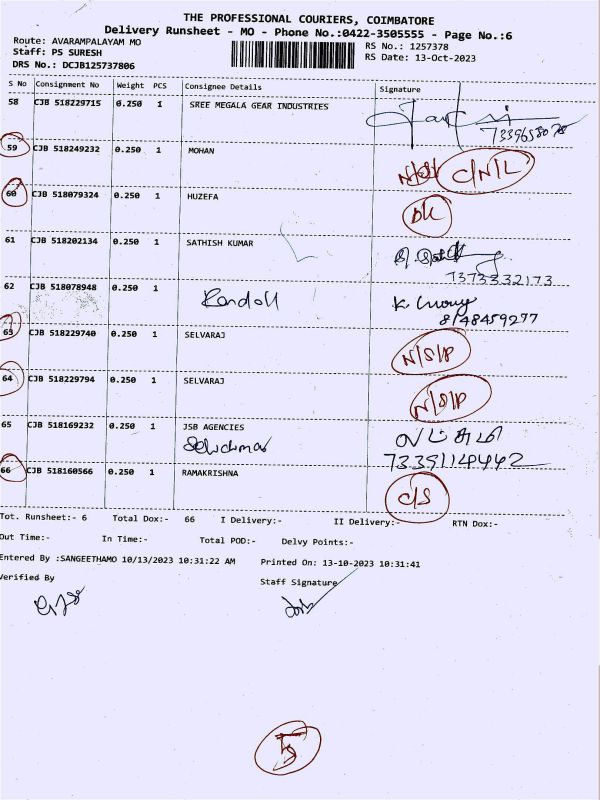 THE PROFESSIONAL COURIERS, COIMBATORE
Delivery Runsheet - MO - Phone No.:0422-3505555 - Page No.:6
Route: AVARAMPALAYAM MO
Staff: PS SURESH
DRS No.: DCJB125737806
RS No.: 1257378
RS Date: 13-Oct-2023
S No Consignment No Weight PCS Consignee Details Signature
58 CJB 518229715 0.250 1 SREE MEGALA GEAR INDUSTRIES
7339658078
59 CJB 518249232 0.250 1 MOHAN C/N/L
60 CJB 518079324 0.250 1 HUZEFA DK
61 CJB 518202134 0.250 1 SATHISH KUMAR
7373332173
62 CJB 518078948 0.250 1
8148459277
63 CJB 518229740 0.250 1 SELVARAJ N/S/P
64 CJB 518229794 0.250 1 SELVARAJ N/S/P
65 CJB 518169232 0.250 1 JSB AGENCIES
7339114442
66 CJB 518160566 0.250 1 RAMAKRISHNA C/S
Tot. Runsheet:- 6 Total Dox:- 66 I Delivery:- II Delivery:- RTN Dox:-
Out Time:- In Time:- Total POD:- Delvy Points:-
Entered By :SANGEETHAMO 10/13/2023 10:31:22 AM Printed On: 13-10-2023 10:31:41
Verified By Staff Signature
5